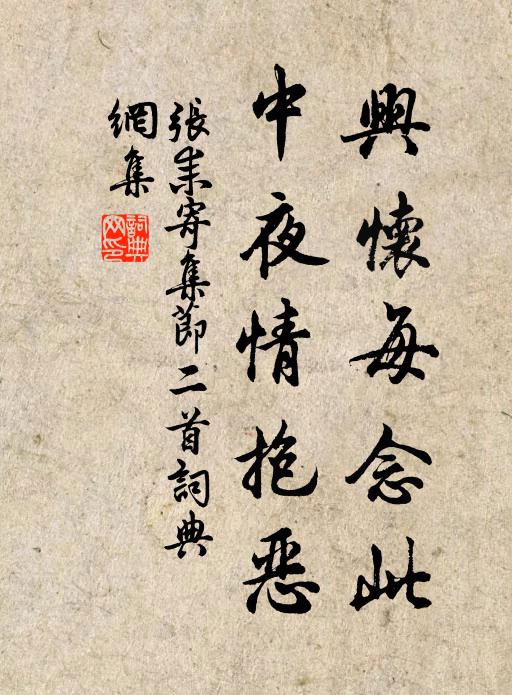 興懷每念此
中夜情抱惡
張耒寄集節二首詞典
網集
詞典
网印